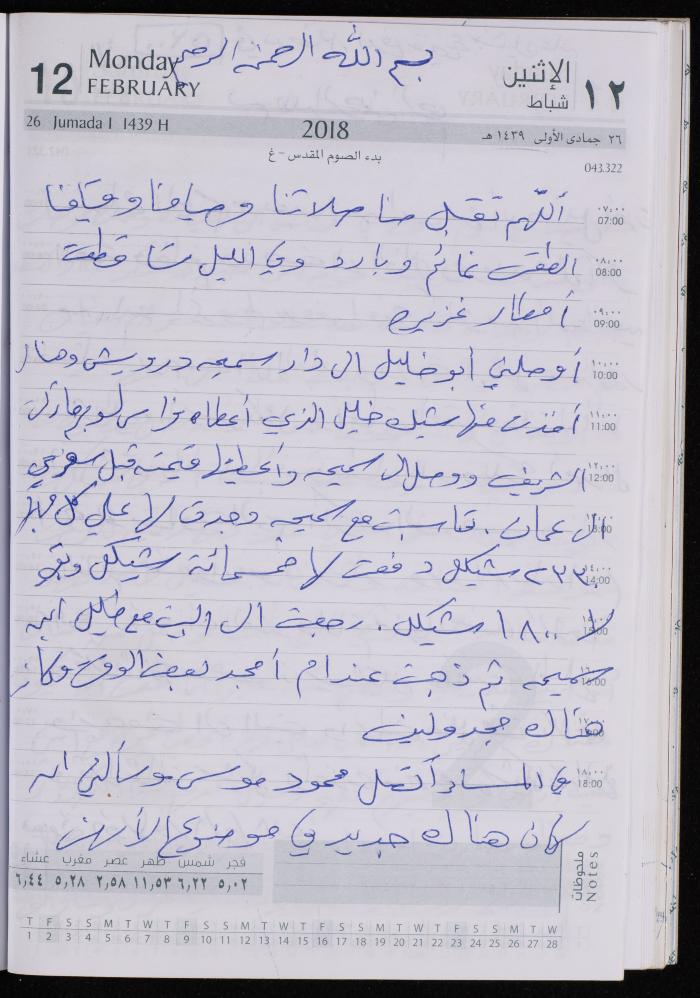 بسم الله الرحمن الرحيم
12 Monday FEBRUARY
الإثنين شباط ١٢
26 Jumada I 1439 H 2018 ٢٦ جمادى الأولى ١٤٣٩ هـ
بدء الصوم المقدس - غ
043.322
اللهم تقبل منا صلاتنا وصيامنا وقيامنا
٠٧:٠٠ 07:00
الطقس غائم وبارد وفي الليل تساقطت
٠٨:٠٠ 08:00
أمطار غزيره
٠٩:٠٠ 09:00
أوصلني أبو خليل ال دار سميحه درويش وهناك
١٠:٠٠ 10:00
أخذت منها شيك خليل الذي أعطاه
١١:٠٠ 11:00
الشريف ووصل ال سميحه وأعطيتها قيمته قبل سفري
١٢:٠٠ 12:00
ال عمان. تحاسبت مع سميحه وجدت لها علي كل مبلغ
13:00
٢٣٣٠ شيكل دفعت لها خمسمائة شيكل وبقي
١٤:٠٠ 14:00
لها ١٨٠٠ شيكل. رجعت ال البيت مع خليل ابن
سميحه ثم ذهبت عند ام أمجد لبعض الوقت وكان
16:00
هناك مجدولين
في المساء أتصل محمود موسى وسألني اذ
١٨:٠٠ 18:00
كان هناك جديد في موضوع الأرض
فجر شمس ظهر عصر مغرب عشاء
٥,٠٢ ٦,٢٢ ١١,٥٣ ٢,٥٨ ٥,٢٨ ٦,٤٤
ملحوظات Notes
T F S S M T W T F S S M T W T F S S M T W T F S S M T W
1 2 3 4 5 6 7 8 9 10 11 12 13 14 15 16 17 18 19 20 21 22 23 24 25 26 27 28